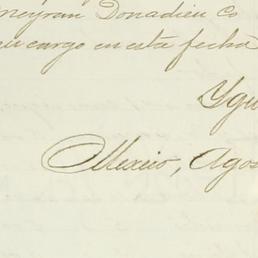 meyran Donadieu Co
su cargo en esta fecha
Ygu
Mexico, Agos